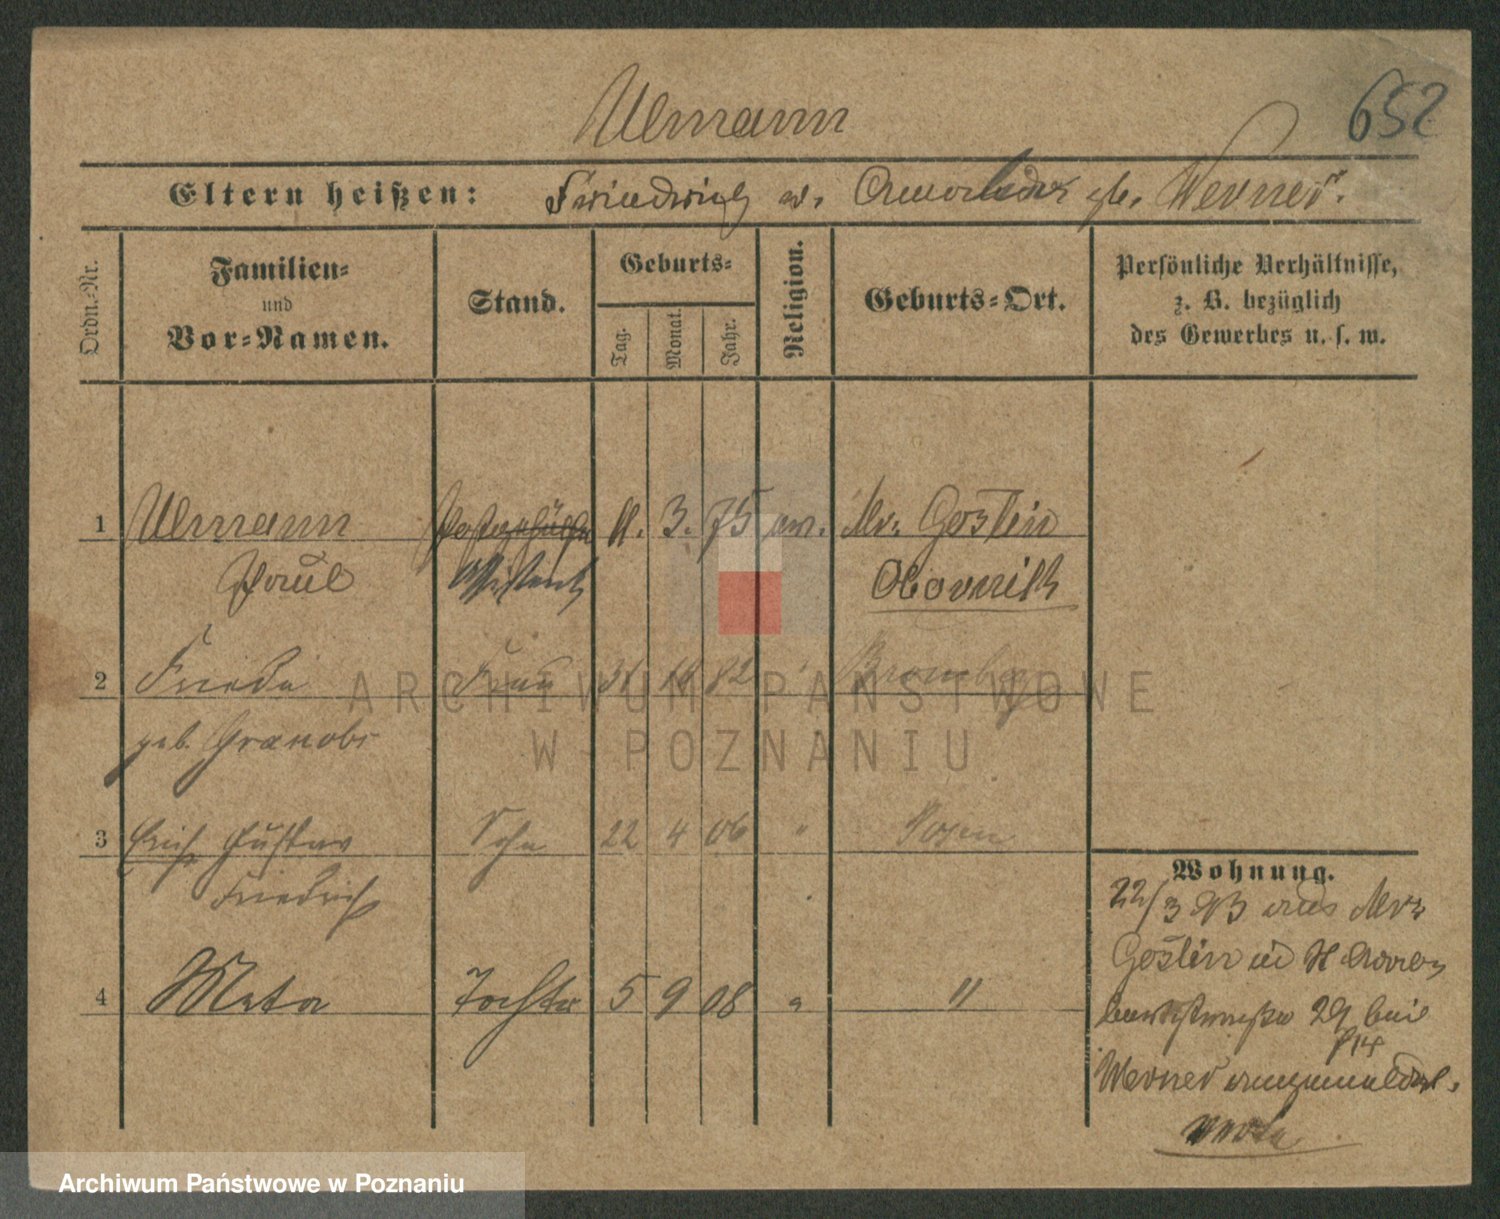 Ulmann
652
Eltern heißen: Friedrich u. Amalie geb. Werner.
Ordn.-Nr.
Familien-
und
Vor-Namen.
Stand.
Geburts-
Tag.
Monat.
Jahr.
Religion.
Geburts-Ort.
Persönliche Verhältnisse,
z. B. bezüglich
des Gewerbes u. s. w.
1 Ulmann Postgehülfe 11. 3. 75 ev. Mur. Goslin
Paul Assistent Obornik
2 Frieda Frau 31 82 " Bromberg
geb.
3 Erich Gustav Sohn 22 4 06 " Posen
Friedrich
Wohnung.
22/3 93 aus Mur.
Goslin in
4 Meta Tochter 5 9 08 " "
29 bei
Werner angemeldet.
ARCHIWUM PAŃSTWOWE
W POZNANIU
Archiwum Państwowe w Poznaniu